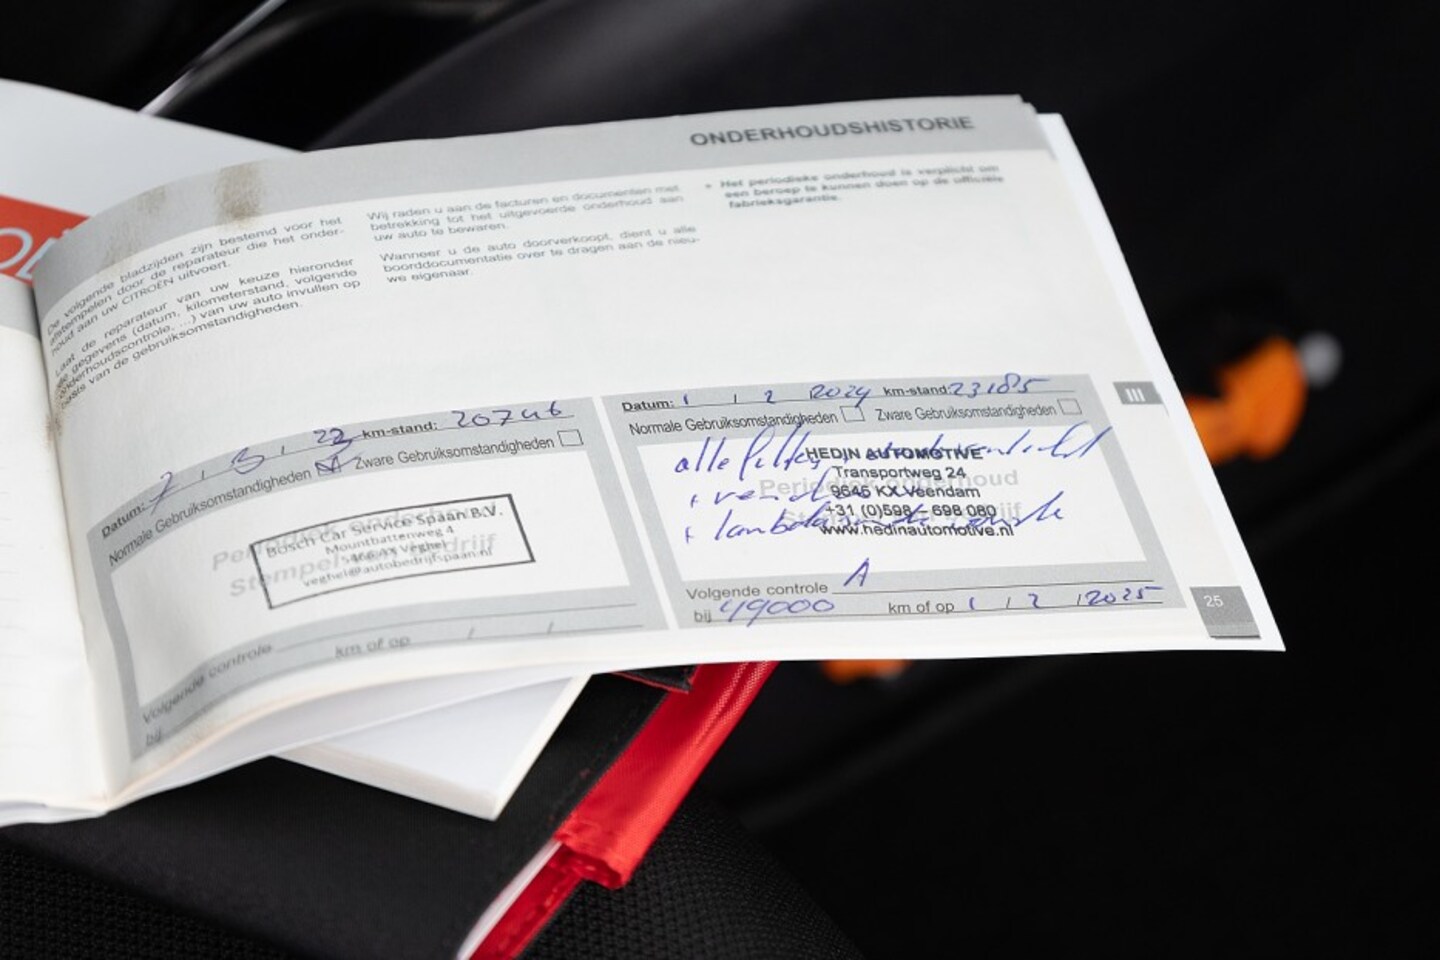 ONDERHOUDSHISTORIE
De volgende bladzijden zijn bestemd voor het
afstempelen door de reparateur die het onder-
houd aan uw CITROËN uitvoert.
Laat de reparateur van uw keuze hieronder
alle gegevens (datum, kilometerstand, volgende
onderhoudscontrole, ...) van uw auto invullen op
basis van de gebruiksomstandigheden.
Wij raden u aan de facturen en documenten met
betrekking tot het uitgevoerde onderhoud aan
uw auto te bewaren.
Wanneer u de auto doorverkoopt, dient u alle
boorddocumentatie over te dragen aan de nieu-
we eigenaar.
Het periodieke onderhoud is verplicht om
een beroep te kunnen doen op de officiële
fabrieksgarantie.
Datum: 7 / 3 / 22 km-stand: 20746
Normale Gebruiksomstandigheden Zware Gebruiksomstandigheden
Periodiek onderhoud
Stempel bedrijf
Bosch Car Service Spaan B.V.
Mountbattenweg 4
5466 AX Veghel
veghel@autobedrijfspaan.nl
Volgende controle
bij km of op / /
Datum: 1 / 2 2024 km-stand: 23185
Normale Gebruiksomstandigheden Zware Gebruiksomstandigheden
alle filters
Periodiek onderhoud
HEDIN AUTOMOTIVE
Transportweg 24
9645 KX Veendam
+31 (0)598 - 698 080
www.hedinautomotive.nl
+ lambdasonde
Volgende controle A
bij 49000 km of op 1 / 2 / 2025
III
25